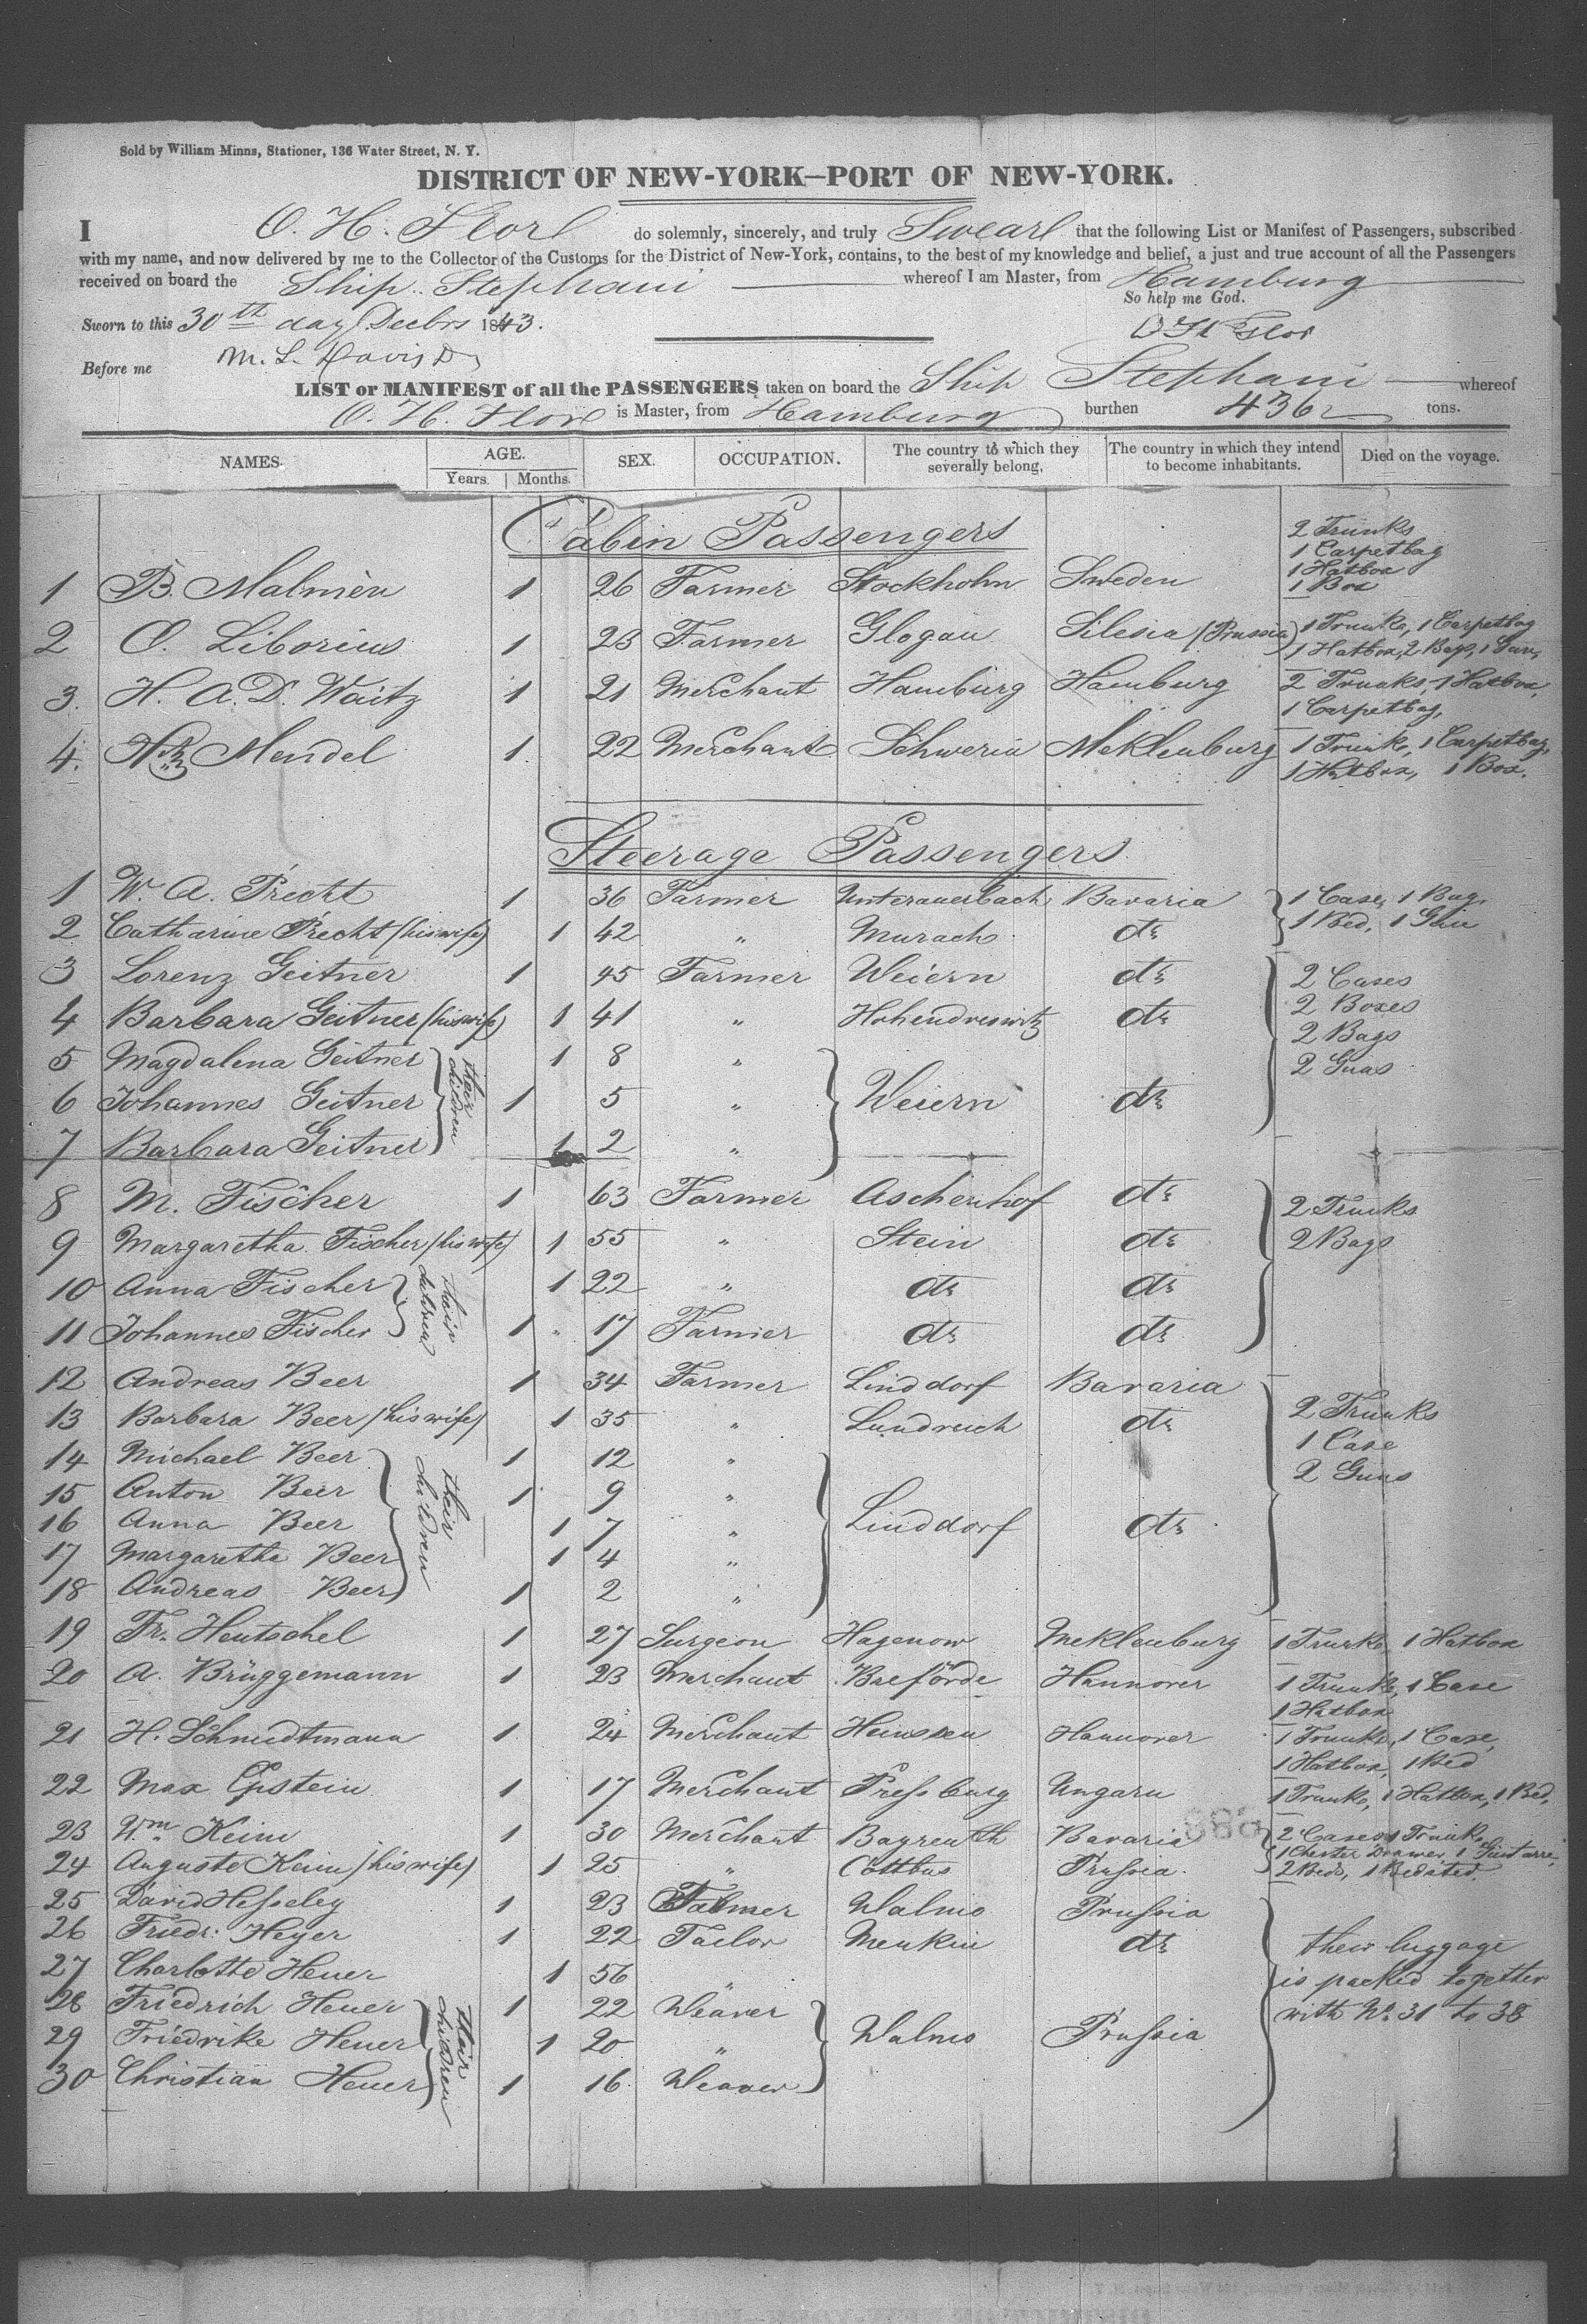 Sold by William Minns, Stationer, 136 Water Street, N. Y.
DISTRICT OF NEW-YORK—PORT OF NEW-YORK.
I O. H. Flor do solemnly, sincerely, and truly Swear that the following List or Manifest of Passengers, subscribed
with my name, and now delivered by me to the Collector of the Customs for the District of New-York, contains, to the best of my knowledge and belief, a just and true account of all the Passengers
received on board the Ship Stephani whereof I am Master, from Hamburg
So help me God.
Sworn to this 30th day Decbr 1843. O H Flor
Before me M. L. Davis
LIST or MANIFEST of all the PASSENGERS taken on board the Ship Stephani whereof
O. H. Flor is Master, from Hamburg burthen 436 tons.
NAMES. AGE. Years. Months. SEX. OCCUPATION. The country to which they severally belong. The country in which they intend to become inhabitants. Died on the voyage.
Cabin Passengers
1 B. Malmèn 1 26 Farmer Stockholm Sweden 2 Trunks 1 Carpetbag 1 Hatbox 1 Box
2 O. Liborius 1 23 Farmer Glogau Silesia (Prussia) 1 Trunk, 1 Carpetbag 1 Hatbox, 2 Bags, 1 Gun,
3. H. A. D. Waitz 1 21 Merchant Hamburg Hamburg 2 Trunks, 1 Hatbox, 1 Carpetbag,
4. Mendel 1 22 Merchant Schwerin Meklenburg 1 Trunk, 1 Carpetbag, 1 Hatbox, 1 Box.
Steerage Passengers
1 W. A. Precht 1 36 Farmer Unterauerbach Bavaria 1 Case, 1 Bag,
2 Catharine Precht (his wife) 1 42 " Murach do 1 Bed, 1 Gun
3 Lorenz Geitner 1 45 Farmer Weiern do 2 Cases
4 Barbara Geitner (his wife) 1 41 " Hohendreswitz do 2 Boxes
2 Bags
5 Magdalena Geitner 1 8 " 2 Guns
6 Johannes Geitner their children 1 5 " Weiern do
7 Barbara Geitner 1 2 "
8 M. Fischer 1 63 Farmer Aschenhof do 2 Trunks
9 Margaretha Fischer (his wife) 1 55 " Stein do 2 Bags
10 Anna Fischer their children 1 22 " do do
11 Johannes Fischer 1 17 Farmer do do
12 Andreas Beer 1 34 Farmer Linddorf Bavaria
13 Barbara Beer (his wife) 1 35 " Lundreich do 2 Trunks
14 Michael Beer 1 12 " 1 Case
15 Anton Beer their children 1 9 " 2 Guns
16 Anna Beer 1 7 " Linddorf do
17 Margaretha Beer 1 4 "
18 Andreas Beer 1 2 "
19 Fr. Hentschel 1 27 Surgeon Hagenow Meklenburg 1 Trunk, 1 Hatbox
20 A. Brüggemann 1 23 Merchant Hannover 1 Trunk, 1 Case 1 Hatbox
21 H. Schmidtmann 1 24 Merchant Heinssen Hannover 1 Trunk, 1 Case, 1 Hatbox, 1 Bed
22 Max Epstein 1 17 Merchant Pressburg Ungarn 1 Trunk, 1 Hatbox, 1 Bed,
23 Wm. Keim 1 30 Merchant Bayreuth Bavaria 2 Cases 1 Trunk,
24 Auguste Keim (his wife) 1 25 " Cottbus Prussia 2 Beds, 1 Bedsted.
25 David Hesseley 1 23 Farmer Walmo Prussia
26 Friedr: Heyer 1 22 Tailor Menkin do their luggage
27 Charlotte Heuer 1 56 " is packed together
28 Friedrich Heuer 1 22 Weaver with No. 31 to 38
29 Friedrike Heuer their children 1 20 " Walmo Prussia
30 Christian Heuer 1 16 Weaver